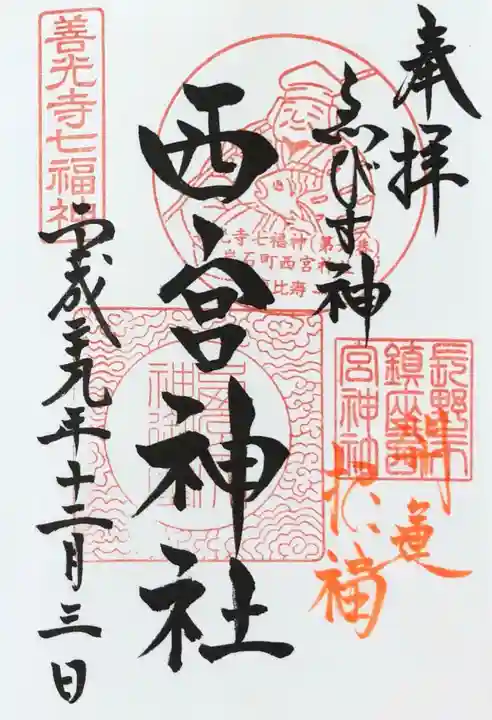 奉拝
ゑびす神
西宮神社
平成二十九年十二月三日
善光寺七福神
寺七福神(第
岩石町西宮神
比寿
長野市
鎮座西
宮神社
開運
招福